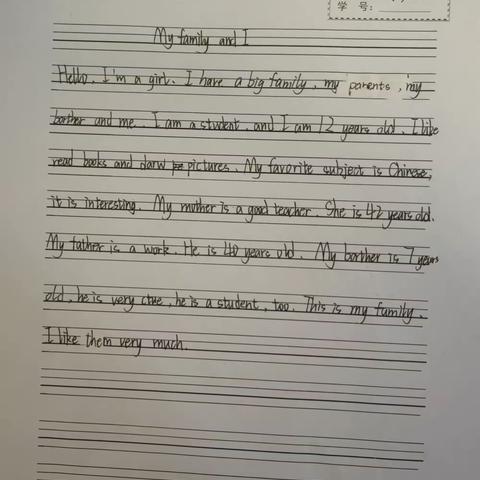 学 号:
My family and I
Hello. I'm a girl. I have a big family, my parents, my
borther and me. I am a student. and I am 12 years old. I like
read books and darw pictures. My favorite subject is Chinese,
it is interesting. My mother is a good teacher. She is 42 years old.
My father is a work. He is 40 years old. My borther is 7 years
old, he is very ctue, he is a student, too. This is my family.
I like them very much.